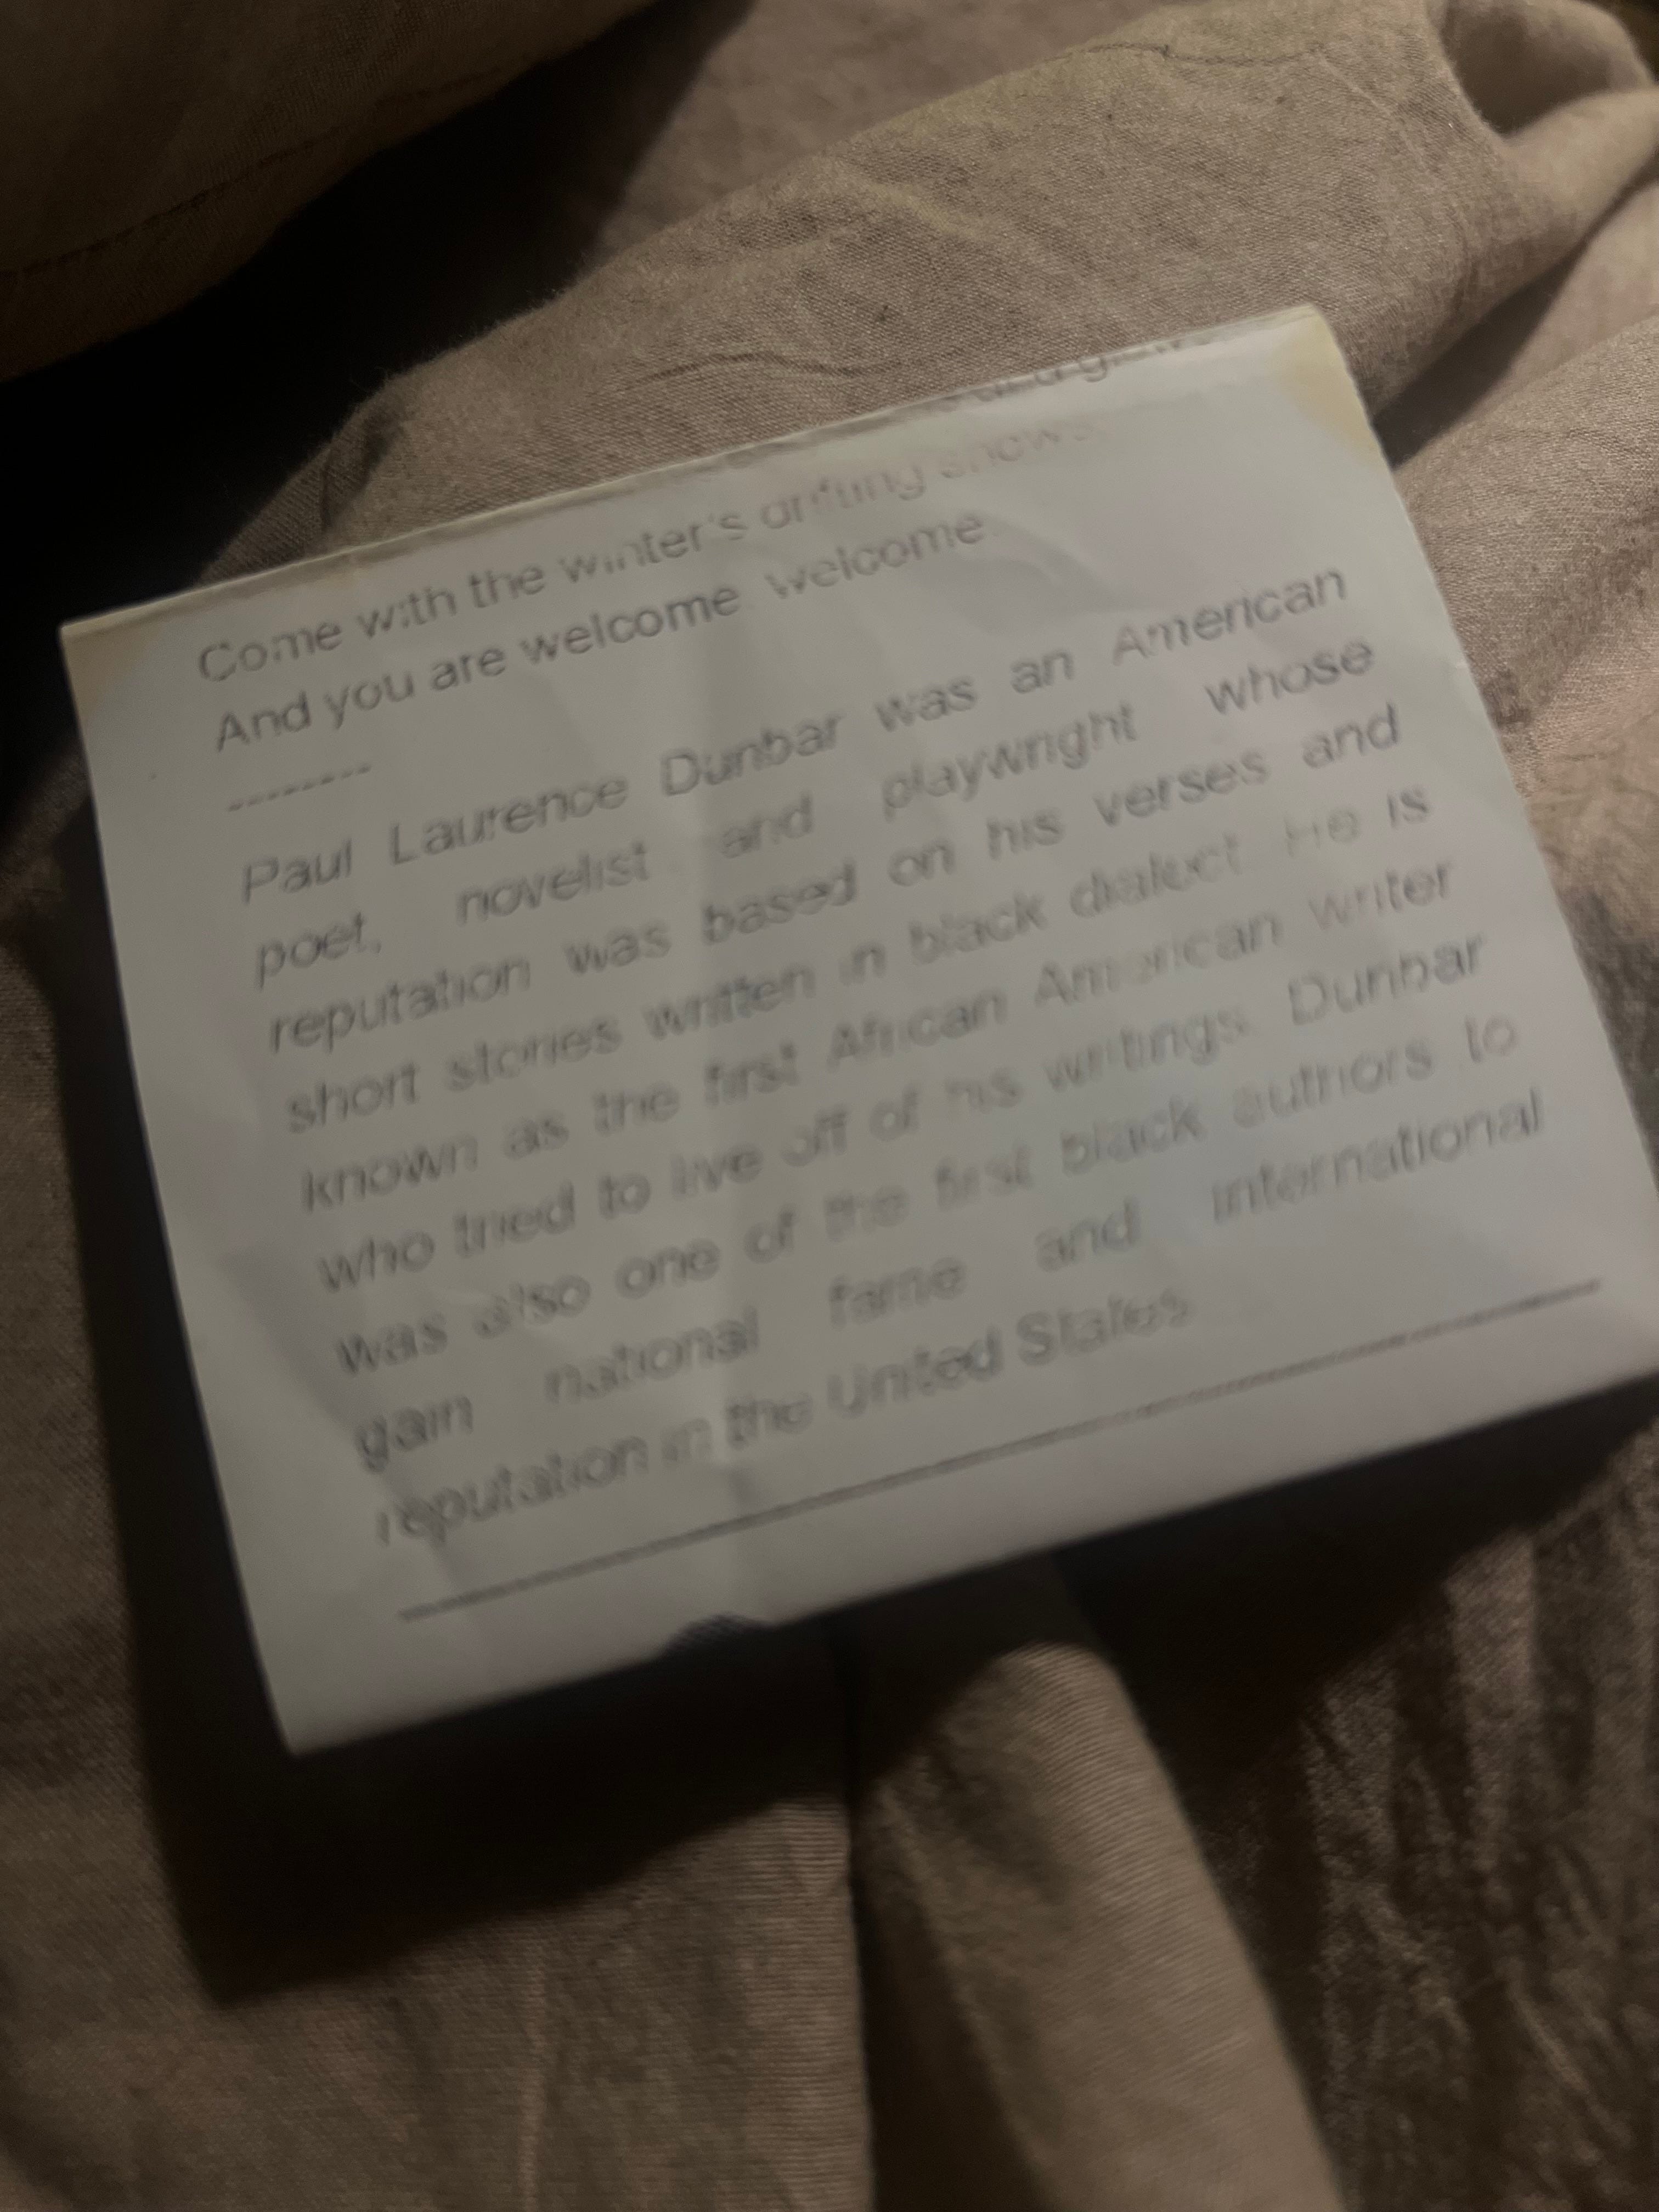 Come with the winter's drifting snows
And you are welcome welcome
--------
Paul Laurence Dunbar was an American
poet, novelist and playwright whose
reputation was based on his verses and
short stories written in black dialect He is
known as the first African American writer
who tried to live off of his writings Dunbar
was also one of the first black authors to
gain national fame and international
reputation in the United States